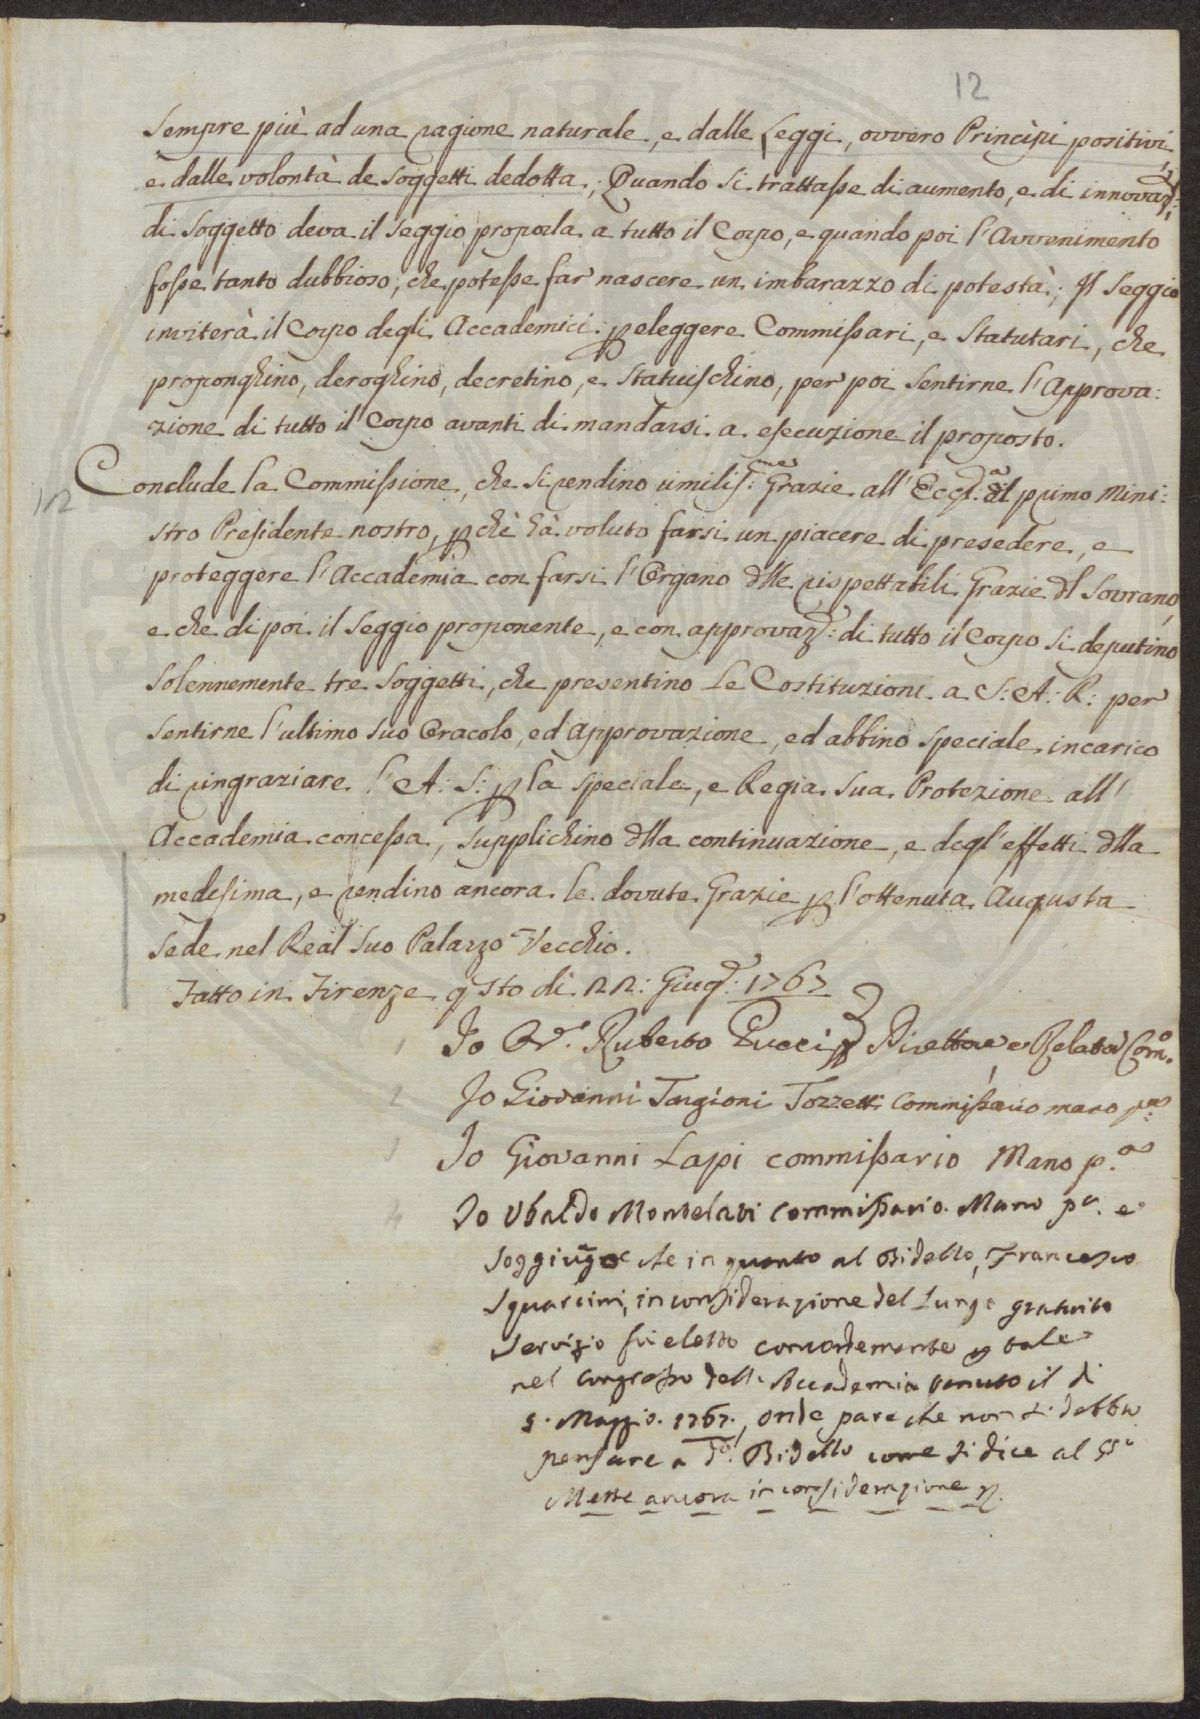 12
Sempre più ad una ragione naturale, e dalle Leggi, ovvero Principi positivi,
e dalle volontà de Soggetti dedotta; Quando si trattasse di aumento, e di innovaz:
di Soggetto deva il Seggio proporla a tutto il Corpo, e quando poi l'Avvenimento
fosse tanto dubbioso, che potesse far nascere un imbarazzo di potestà; Il Seggio
inviterà il Corpo degli Accademici p eleggere Commissari, e Statutari, che
proponghino, deroghino, decretino, e Statuischino, per poi Sentirne l'Approva:
zione di tutto il Corpo avanti di mandarsi a esecuzione il proposto.
112
Conclude la Commissione, che si rendino umilis:me Grazie all' Ecc:a dl primo Mini:
stro Presidente nostro, pchè hà voluto farsi un piacere di presedere, e
proteggere l'Accademia con farsi l'Organo dlle rispettabili Grazie dl Sovrano,
e che di poi il Seggio proponente, e con approvaz: di tutto il Corpo si deputino
Solennemente tre Soggetti, che presentino Le Costituzioni a S: A: R: per
Sentirne l'ultimo Suo Oracolo, ed Approvazione, ed abbino Speciale incarico
di ringraziare l' A: S: p la Speciale, e Regia Sua Protezione all'
Accademia concessa, Supplichino dlla continuazione, e degl'effetti dlla
medesima, e rendino ancora le dovute Grazie p l'ottenuta Augusta
Sede nel Real Suo Palazzo Vecchio.
Fatto in Firenze qsto di 22: Giug: 1767
1 Io Ruberto Pucci Direttore e Relator Com.o
2 Io Giovanni Targioni Tozzetti Commissario mano pa
3 Io Giovanni Lapi commissario Mano p.a
4 Io Ubaldo Montelatici Commissario Mano pa. e
Soggiungo che in quanto al Bidello, Francesco
Squarcini, in considerazione del Lungo gratuito
Servizio fù eletto concordemente p tale
nel congresso dell' Accademia tenuto il di
5. Maggio. 1767., onde pare che non si debba
pensare a do. Bidello come si dice al §o
Mette ancora in considerazione p.